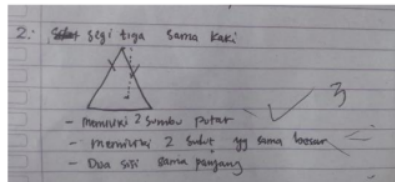 2. segi tiga sama kaki
- memiliki 2 sumbu putar
3
- memiliki 2 sudut yg sama besar
- Dua sisi sama panjang